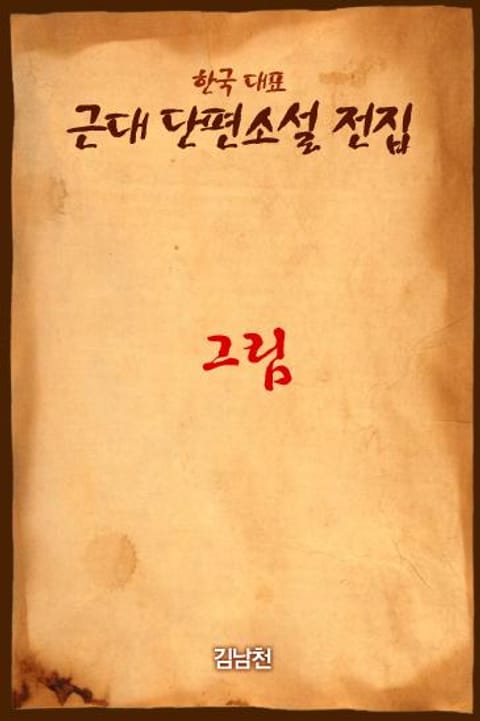 한국 대표
근대 단편소설 전집
그림
김남천